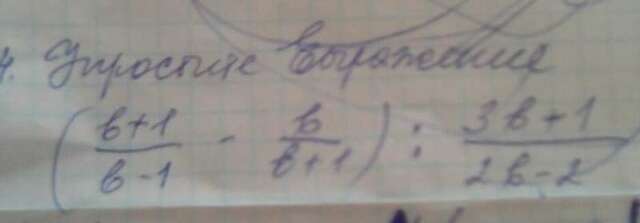 4. Упростите выражение
(в+1/в-1 - в/в+1) : 3в+1/2в-2